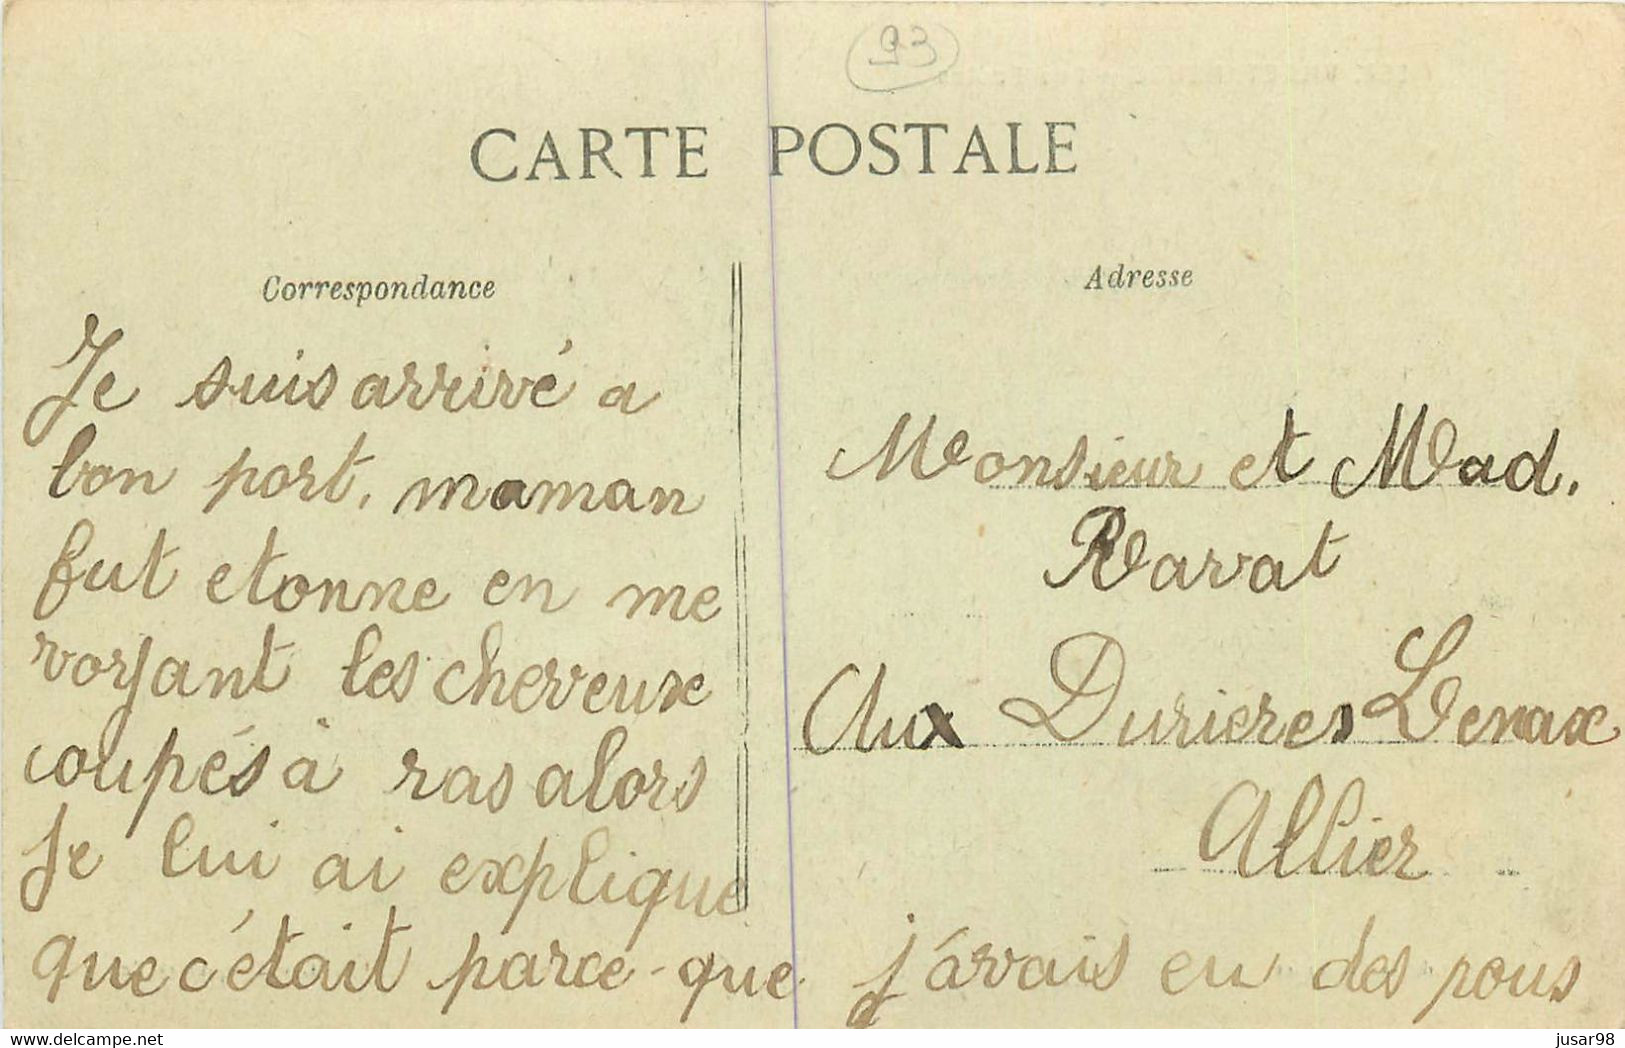 93
CARTE POSTALE
Correspondance
Je suis arrivé a
bon port, maman
fut etonne en me
voyant les cheveux
coupés à ras alors
Je lui ai explique
que c'était parce-que
Adresse
Monsieur et Mad.
Ravat
Aux Durieres Lenax
Allier
j'avais eu des pous
www.delcampe.net
jusar98